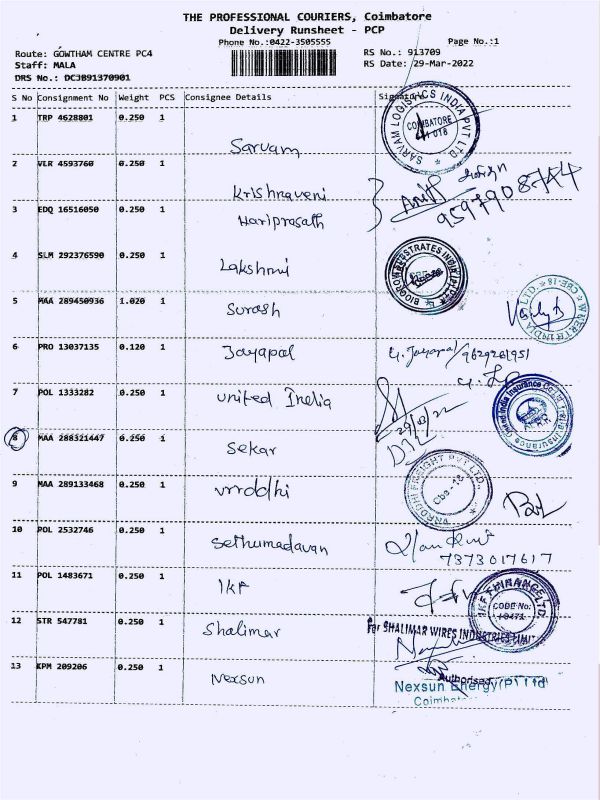 THE PROFESSIONAL COURIERS, Coimbatore
Delivery Runsheet - PCP
Phone No.:0422-3505555
Page No.:1
Route: GOWTHAM CENTRE PC4
RS No.: 913709
Staff: MALA
RS Date: 29-Mar-2022
DRS No.: DCJB91370901
S No Consignment No Weight PCS Consignee Details Signature
1 TRP 4628801 0.250 1 Sarvam
SARVAM LOGISTICS INDIA PVT LTD
COIMBATORE
2 VLR 4593760 0.250 1 Krishnaveni
9597908744
3 EDQ 16516050 0.250 1 Hariprasath
4 SLM 292376590 0.250 1 Lakshmi
5 MAA 289450936 1.020 1 Surash
6 PRO 13037135 0.120 1 Jayapal
G. Jayapal/9629261951
7 POL 1333282 0.250 1 United India
8 MAA 288321447 0.250 1 Sekar
9 MAA 289133468 0.250 1 vrrddhi
VRRDDHI FREIGHT PVT LTD.
10 POL 2532746 0.250 1 Sethumadavan
7373017617
11 POL 1483671 0.250 1 IKF
IKF FINANCE LTD.
CODE No:
12 STR 547781 0.250 1 Shalimar
For SHALIMAR WIRES INDUSTRIES LIMIT
13 KPM 209206 0.250 1 Nexsun
Authorised
Nexsun Energy (P) Ltd
Coimbat